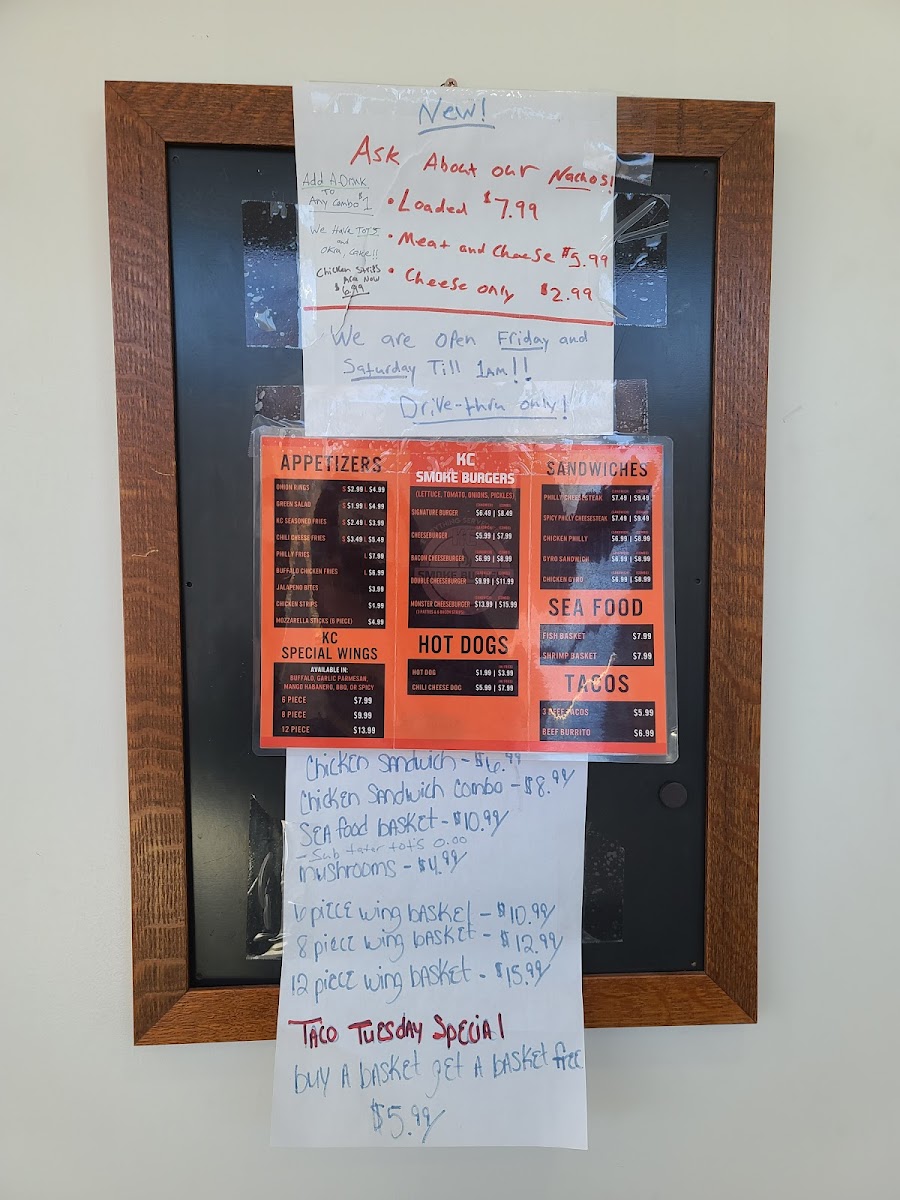 New!
Ask About our Nachos!
• Loaded $7.99
• Meat and Cheese $5.99
• Cheese only $2.99
Add A Drink
To
Any Combo $1
We Have TOTS
and
Okra,
Chicken Strips
Are Now
$6.99
We are open Friday and
Saturday Till 1AM!!
Drive-thru only!
APPETIZERS
ONION RINGS S $2.99 L $4.99
GREEN SALAD S $1.99 L $4.99
KC SEASONED FRIES S $2.49 L $3.99
CHILI CHEESE FRIES S $3.49 L $5.49
PHILLY FRIES L $7.99
BUFFALO CHICKEN FRIES L $6.99
JALAPENO BITES $3.99
CHICKEN STRIPS $1.99
MOZZARELLA STICKS (6 PIECE) $4.99
KC
SPECIAL WINGS
AVAILABLE IN:
BUFFALO, GARLIC PARMESAN,
MANGO HABANERO, BBQ, OR SPICY
6 PIECE $7.99
8 PIECE $9.99
12 PIECE $13.99
KC
SMOKE BURGERS
(LETTUCE, TOMATO, ONIONS, PICKLES)
SIGNATURE BURGER $6.49 | $8.49
CHEESEBURGER $5.99 | $7.99
BACON CHEESEBURGER $6.99 | $8.99
DOUBLE CHEESEBURGER $9.99 | $11.99
MONSTER CHEESEBURGER $13.99 | $15.99
HOT DOGS
HOT DOG $1.99 | $3.99
CHILI CHEESE DOG $5.99 | $7.99
SANDWICHES
PHILLY CHEESESTEAK $7.49 | $9.49
SPICY PHILLY CHEESESTEAK $7.49 | $9.49
CHICKEN PHILLY $6.99 | $8.99
GYRO SANDWICH $6.99 | $8.99
CHICKEN GYRO $6.99 | $8.99
SEA FOOD
FISH BASKET $7.99
SHRIMP BASKET $7.99
TACOS
3 BEEF TACOS $5.99
BEEF BURRITO $6.99
Chicken Sandwich - $6.99
Chicken Sandwich Combo - $8.99
SEAfood basket - $10.99
- Sub tater tot's 0.00
mushrooms - $4.99
6 piece wing basket - $10.99
8 piece wing basket - $12.99
12 piece wing basket - $15.99
TACO TUESDAY SPECIAl
buy A basket get A basket free
$5.99